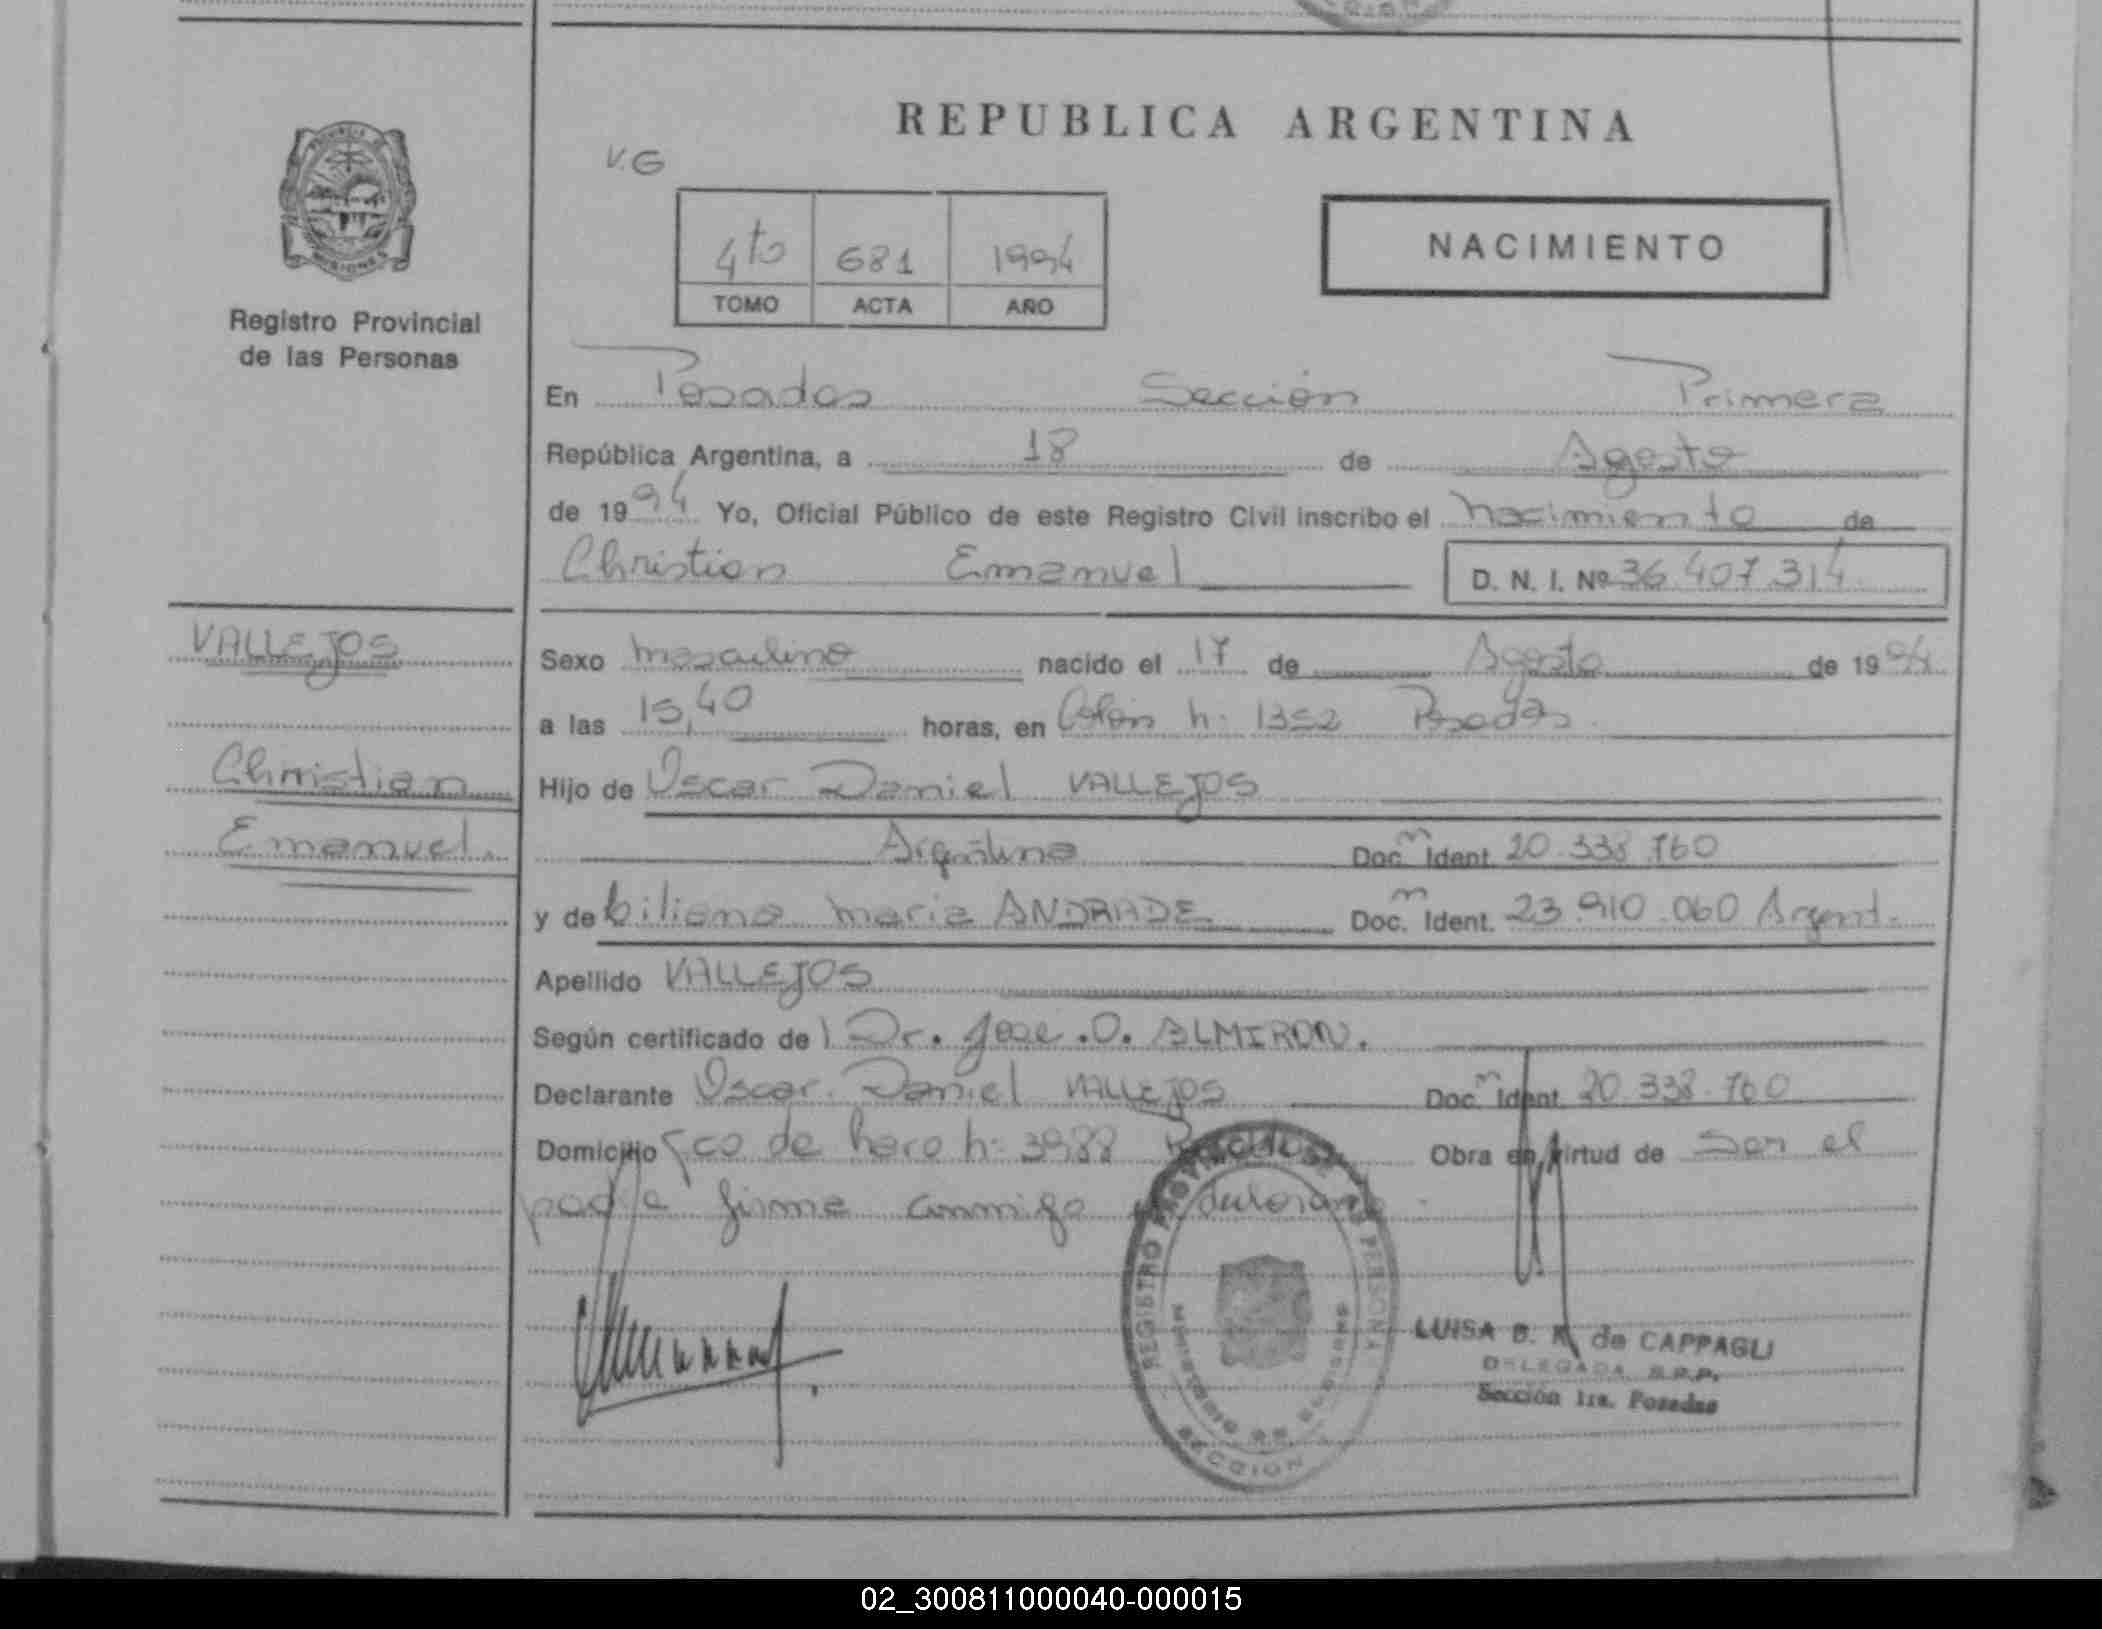 REPUBLICA ARGENTINA
V.G
NACIMIENTO
4to 681 1994
TOMO ACTA AÑO
PROVINCIA DE
MISIONES
Registro Provincial
de las Personas
En Posadas Sección Primera
República Argentina, a 18 de Agosto
de 1994 Yo, Oficial Público de este Registro Civil inscribo el nacimiento de
Christian Emanuel D. N. I. Nº 36.407.314
VALLEJOS
Christian
Emanuel.
Sexo masculino nacido el 17 de Agosto de 1994
a las 15,40 horas, en Colón n: 1352 Posadas.
Hijo de Oscar Daniel VALLEJOS
Argentino Doc. m Ident. 20.338.760
y de Liliana Maria ANDRADE Doc. m Ident. 23.910.060 Argent.
Apellido VALLEJOS
Según certificado de Dr. Jose .O. ALMIRON.
Declarante Oscar Daniel VALLEJOS Doc. m Ident. 20.338.760
Domicilio Fco de haro n: 3988 Obra en virtud de ser el
padre firma conmigo declarante
REGISTRO PROVINCIAL DE LAS PERSONAS
MINISTERIO DE GOBIERNO
SECCION
LUISA B. de CAPPAGLI
DELEGADA R.P.P.
Sección 1ra. Posadas
02_300811000040-000015